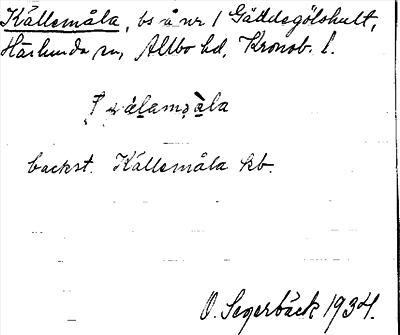 Källemåla, bs å nr 1 Gäddegölshult,
Härlunda sn, Allbo hd, Kronob. l.
backst. Källemåla kb.
O. Segerbäck 1934.